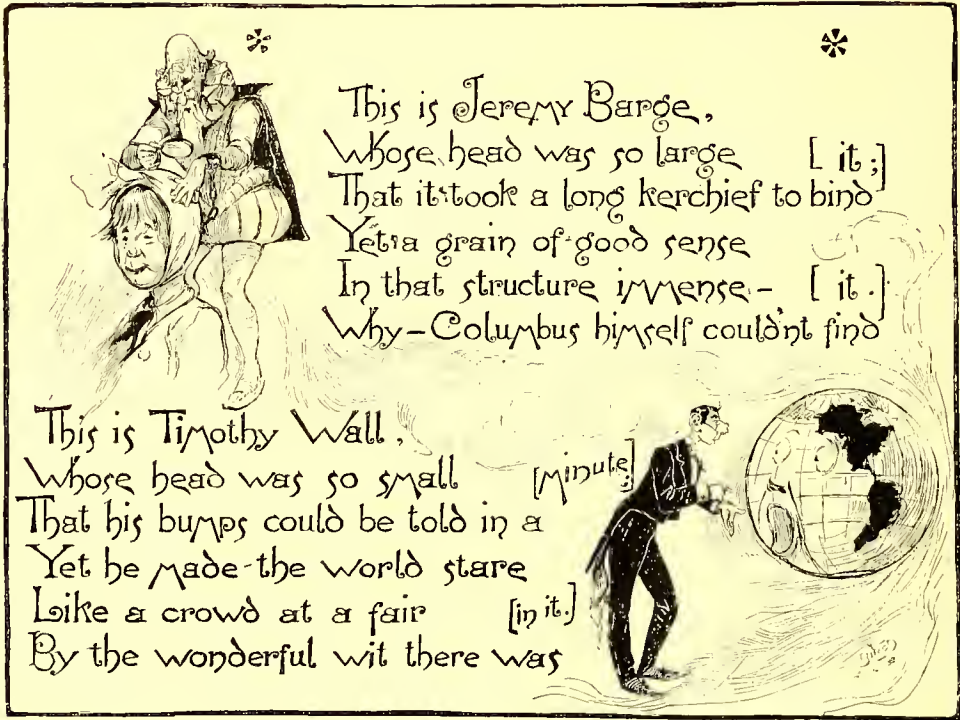 This is Jeremy Barge,
Whose head was so large
[it;]
That it took a long kerchief to bind
Yet a grain of good sense
In that structure immense—
[it.]
Why—Columbus himself could'nt find
This is Timothy Wall,
Whose head was so small
[minute;]
That his bumps could be told in a
Yet he made the world stare
Like a crowd at a fair
[in it.]
By the wonderful wit there was